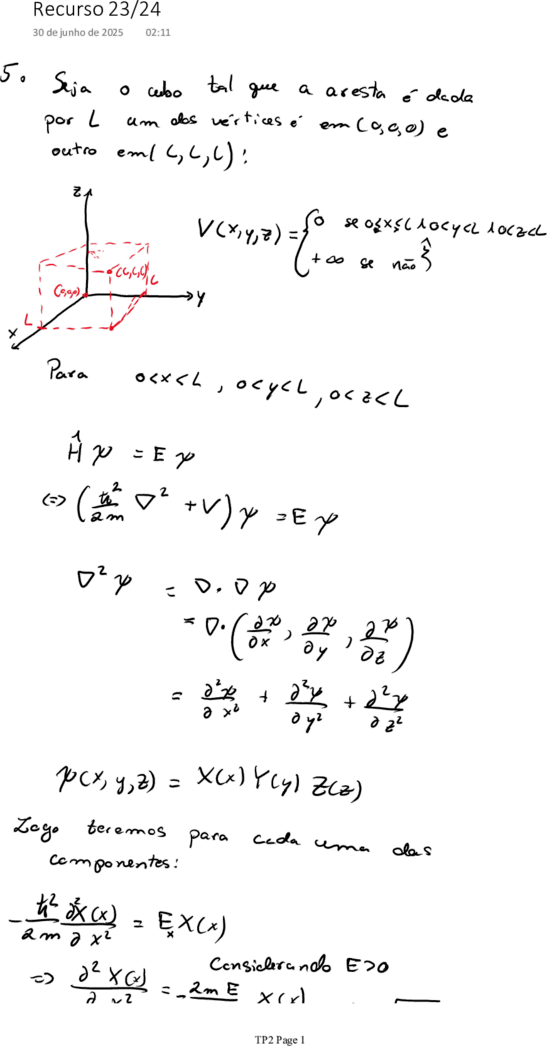 Recurso 23/24
30 de junho de 2025 02:11
5. Seja o cubo tal que a aresta é dada
por L um dos vértices é em (0,0,0) e
outro em (L,L,L):
z
V(x,y,z) = { 0 se 0≤x≤L ∧ 0<y<L ∧ 0<z<L
+∞ se não }
(L,L,L)
(0,0,0)
L
y
L
x
Para 0<x<L , 0<y<L , 0<z<L
Ĥψ = Eψ
<=> (ħ²/2m ∇² + V)ψ = Eψ
∇²ψ = ∇·∇ψ
= ∇·(∂ψ/∂x, ∂ψ/∂y, ∂ψ/∂z)
= ∂²ψ/∂x² + ∂²ψ/∂y² + ∂²ψ/∂z²
ψ(x,y,z) = X(x) Y(y) Z(z)
Logo teremos para cada uma das
componentes:
-ħ²/2m ∂²X(x)/∂x² = Eₓ X(x)
Considerando E>0
=> ∂²X(x)/∂x² = -2mE X(x)
TP2 Page 1